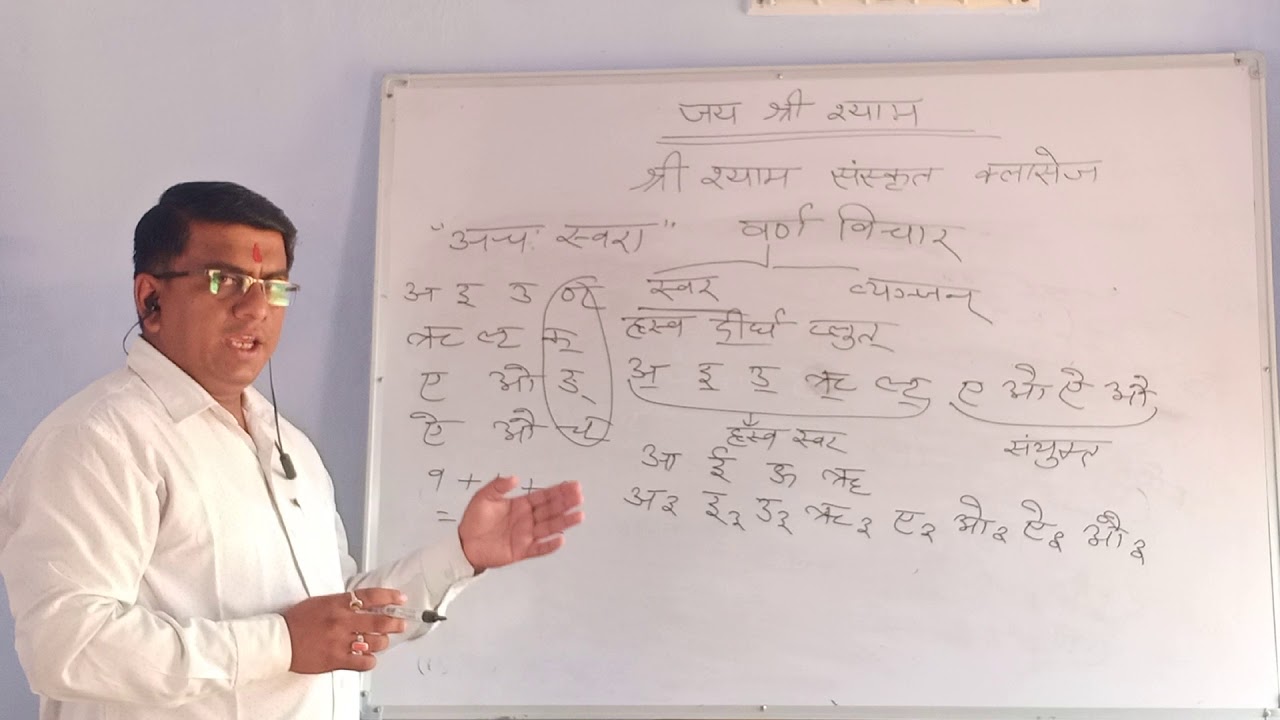 जय श्री श्याम
श्री श्याम संस्कृत क्लासेज
"अचः स्वरा" वर्ण विचार
अ इ उ ण् स्वर व्यञ्जन्
ऋ लृ क् ह्रस्व दीर्घ प्लुत्
ए ओ ङ् अ इ उ ऋ लृ ए ओ ऐ औ
ऐ औ च् ह्रस्व स्वर संयुक्त
आ ई ऊ ॠ
९ + +
=
अ३ इ३ उ३ ऋ३ ए३ ओ३ ऐ३ औ३